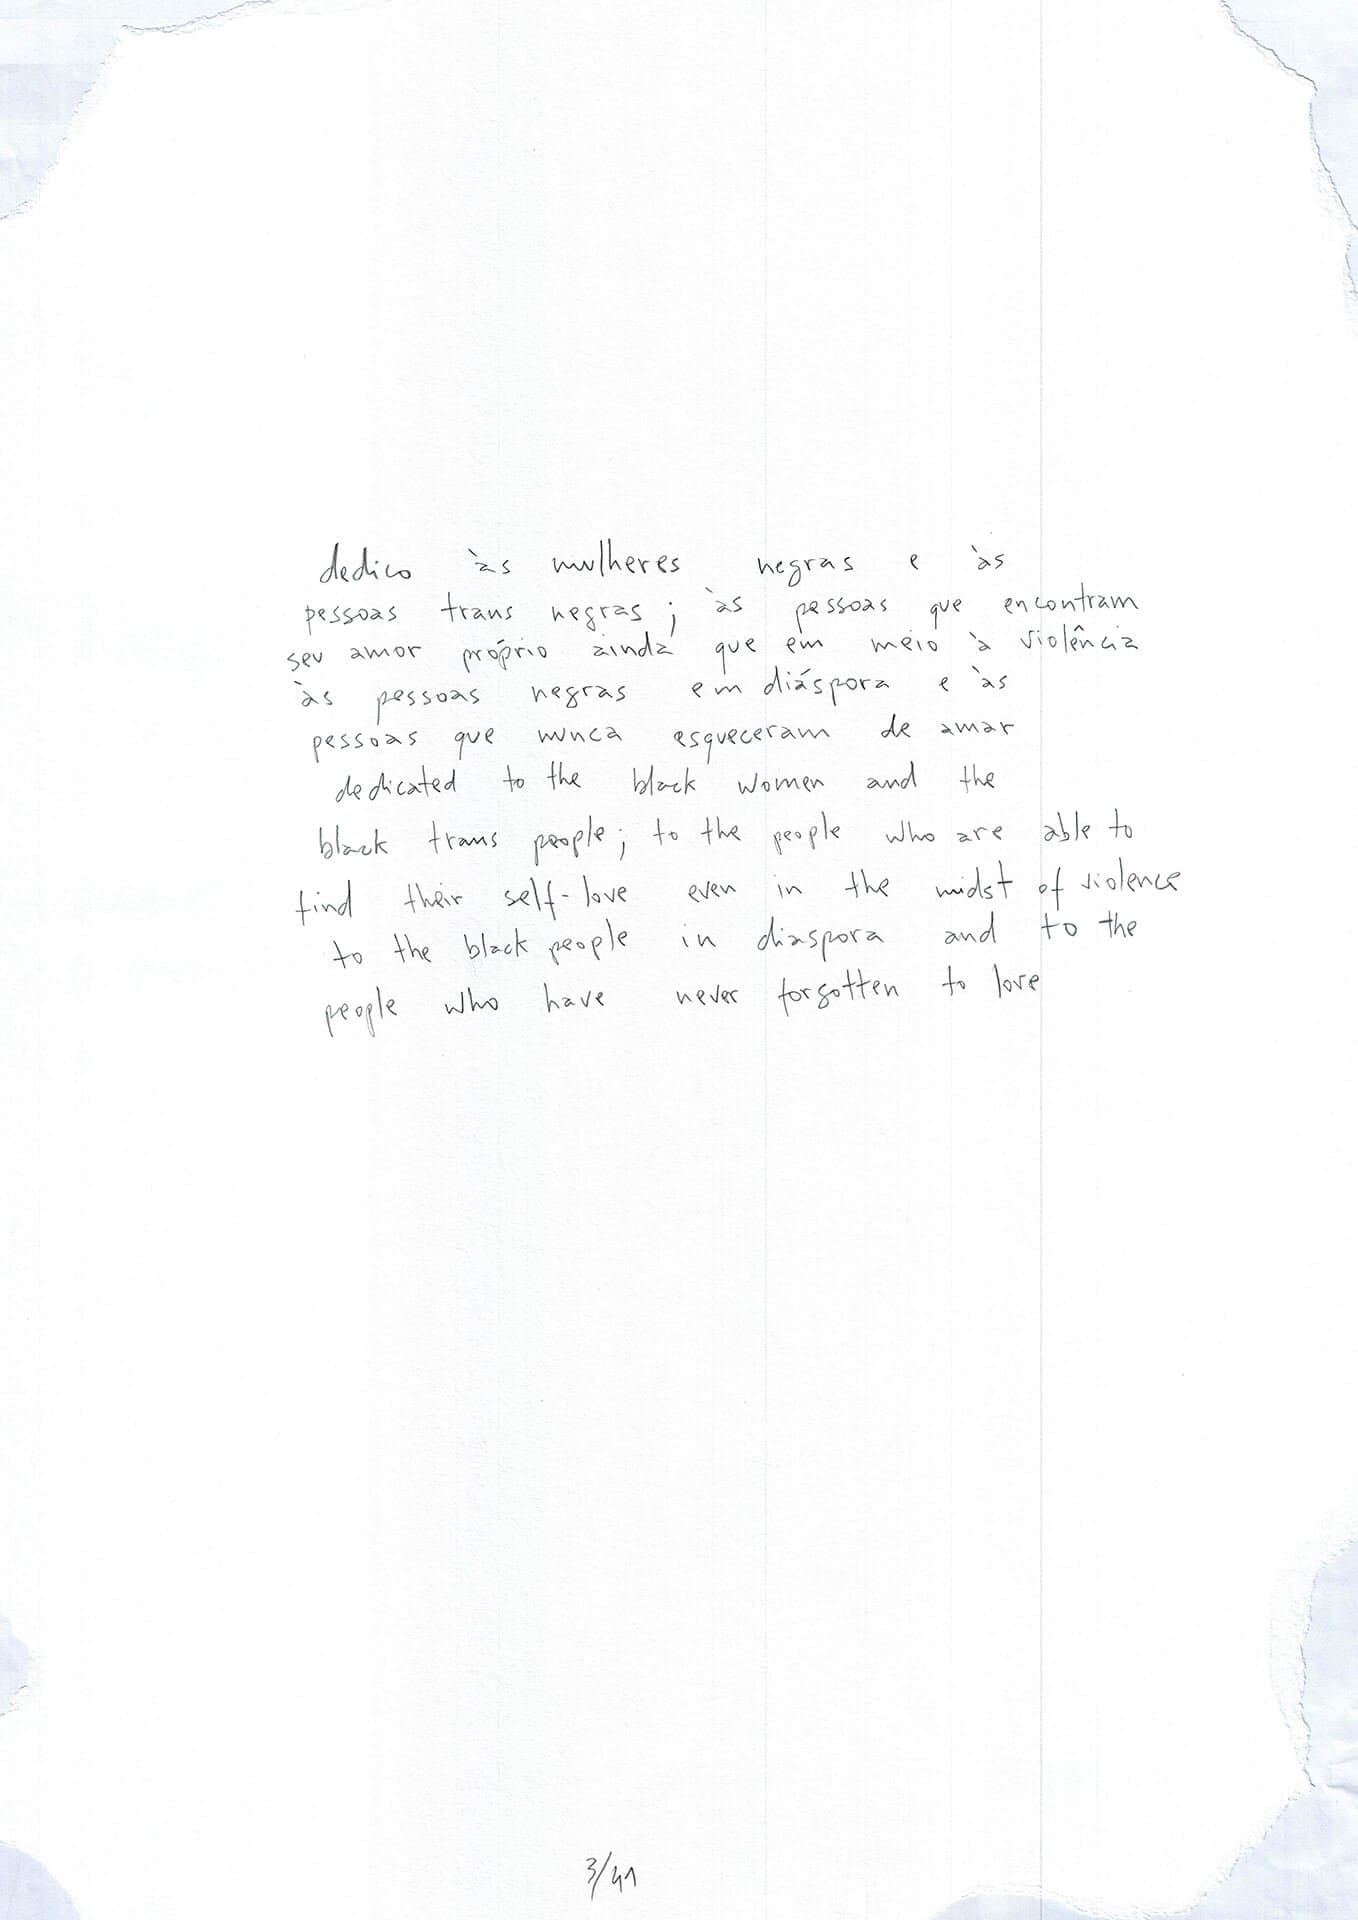 dedico às mulheres negras e às
pessoas trans negras; às pessoas que encontram
seu amor próprio ainda que em meio à violência
às pessoas negras em diáspora e às
pessoas que nunca esqueceram de amar
dedicated to the black women and the
black trans people; to the people who are able to
find their self-love even in the midst of violence
to the black people in diaspora and to the
people who have never forgotten to love
3/41